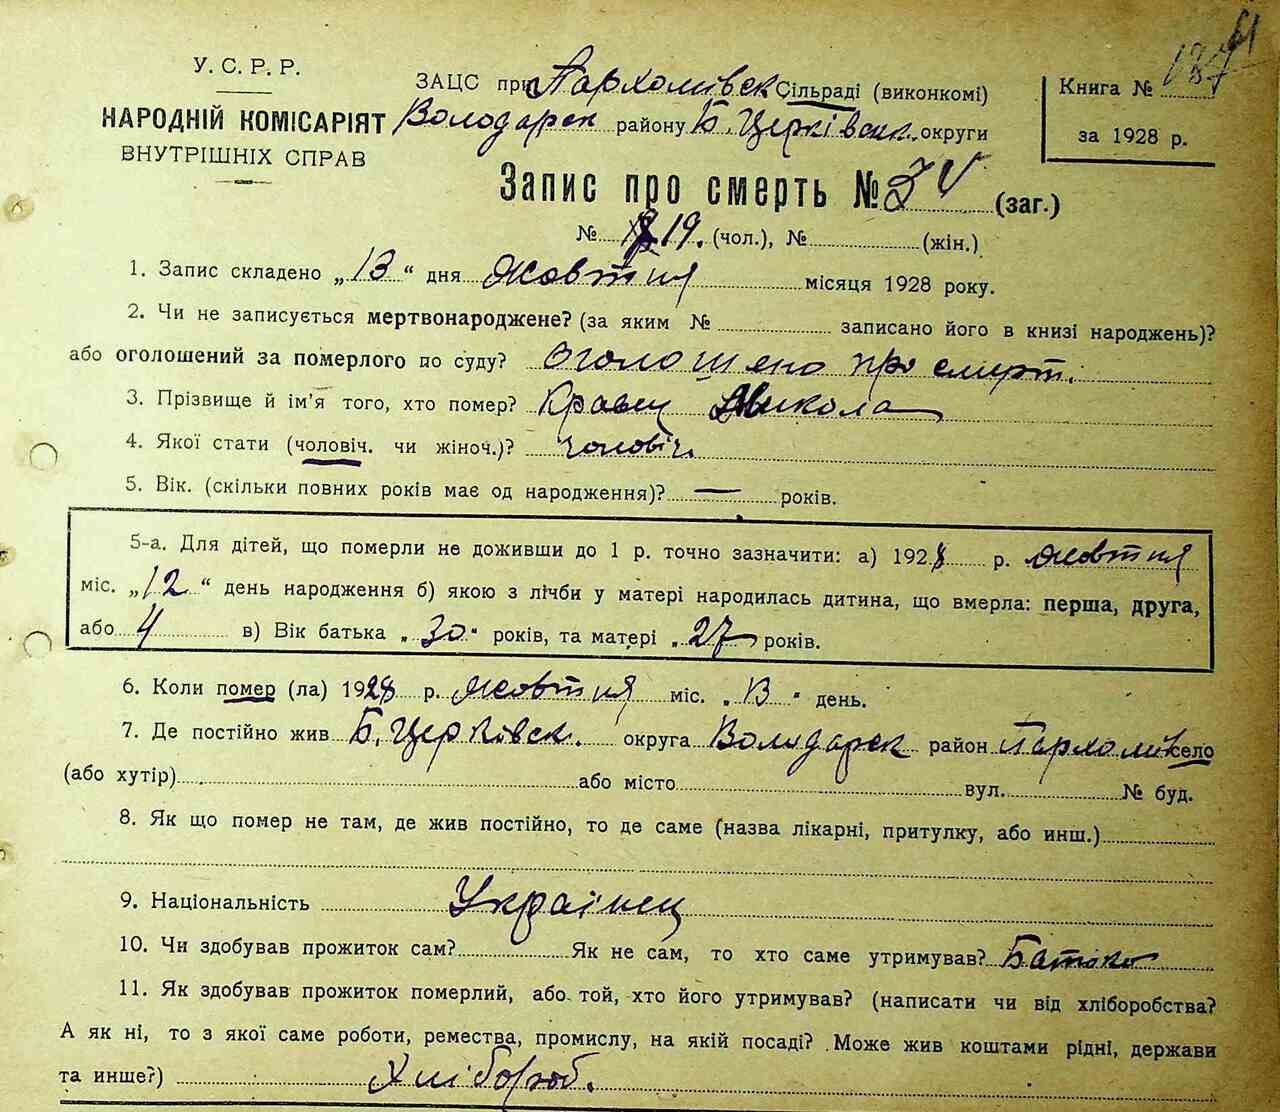 У. С. Р. Р.
НАРОДНІЙ КОМІСАРІЯТ
ВНУТРІШНІХ СПРАВ
ЗАЦС при Пархомівск Сільраді (виконкомі)
Володарск району Б. Церківск. округи
Книга №
за 1928 р.
Запис про смерть № 34 (заг.)
№ 19. (чол.), № (жін.)
1. Запис складено „13“ дня жовтня місяця 1928 року.
2. Чи не записується мертвонароджене? (за яким № записано його в книзі народжень)?
або оголошений за померлого по суду? Оголошено про смерт.
3. Прізвище й ім'я того, хто помер? Кравец Микола
4. Якої стати (чоловіч. чи жіноч.)? чоловіч.
5. Вік. (скільки повних років має од народження)? — років.
5-а. Для дітей, що померли не доживши до 1 р. точно зазначити: а) 1928 р. жовтня
міс. „12“ день народження б) якою з лічби у матері народилась дитина, що вмерла: перша, друга,
або 4 в) Вік батька „30“ років, та матері „27“ років.
6. Коли помер (ла) 1928 р. жовтня міс. „13“ день.
7. Де постійно жив Б. Церковск. округа Володарск район Пархомів село
(або хутір) або місто вул. № буд.
8. Як що помер не там, де жив постійно, то де саме (назва лікарні, притулку, або инш.)
9. Національність Українец
10. Чи здобував прожиток сам? Як не сам, то хто саме утримував? Батько
11. Як здобував прожиток померлий, або той, хто його утримував? (написати чи від хліборобства?
А як ні, то з якої саме роботи, ремества, промислу, на якій посаді? Може жив коштами рідні, держави
та инше?) Хлібороб.